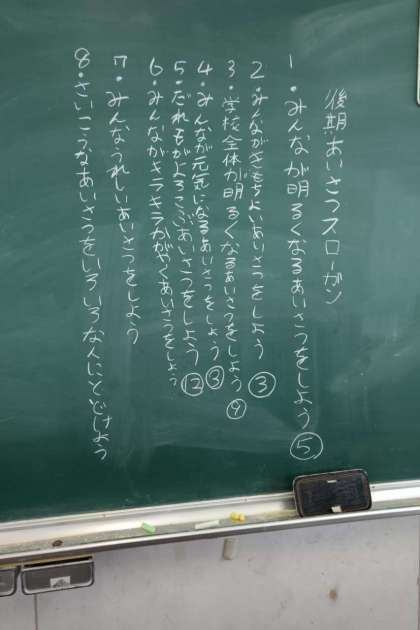 後期あいさつスローガン
1・みんなが明るくなるあいさつをしよう⑤
2・みんながきもちよいあいさつをしよう③
3・学校全体が明るくなるあいさつをしよう⑨
4・みんなが元気になるあいさつをしよう③
5・だれもがよろこぶあいさつをしよう⑫
6・みんながキラキラかがやくあいさつをしよう
7・みんなうれしいあいさつをしよう
8・さいこうなあいさつをいろいろな人にとどけよう